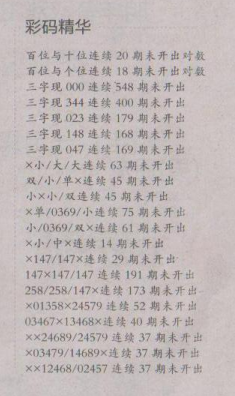 彩码精华
百位与十位连续 20 期未开出对数
百位与个位连续 18 期未开出对数
三字现 000 连续 548 期未开出
三字现 344 连续 400 期未开出
三字现 023 连续 179 期未开出
三字现 148 连续 168 期未开出
三字现 047 连续 169 期未开出
×小/大/大连续 63 期未开出
双/小/单×连续 45 期未开出
小×小/双连续 45 期未开出
×单/0369/小连续 75 期未开出
小/0369/双×连续 61 期未开出
×小/中×连续 14 期未开出
×147/147×连续 29 期未开出
147×147/147 连续 191 期未开出
258/258/147×连续 173 期未开出
×01358×24579 连续 52 期未开出
03467×13468×连续 40 期未开出
××24689/24579 连续 37 期未开出
×03479/14689×连续 37 期未开出
××12468/02457 连续 37 期未开出